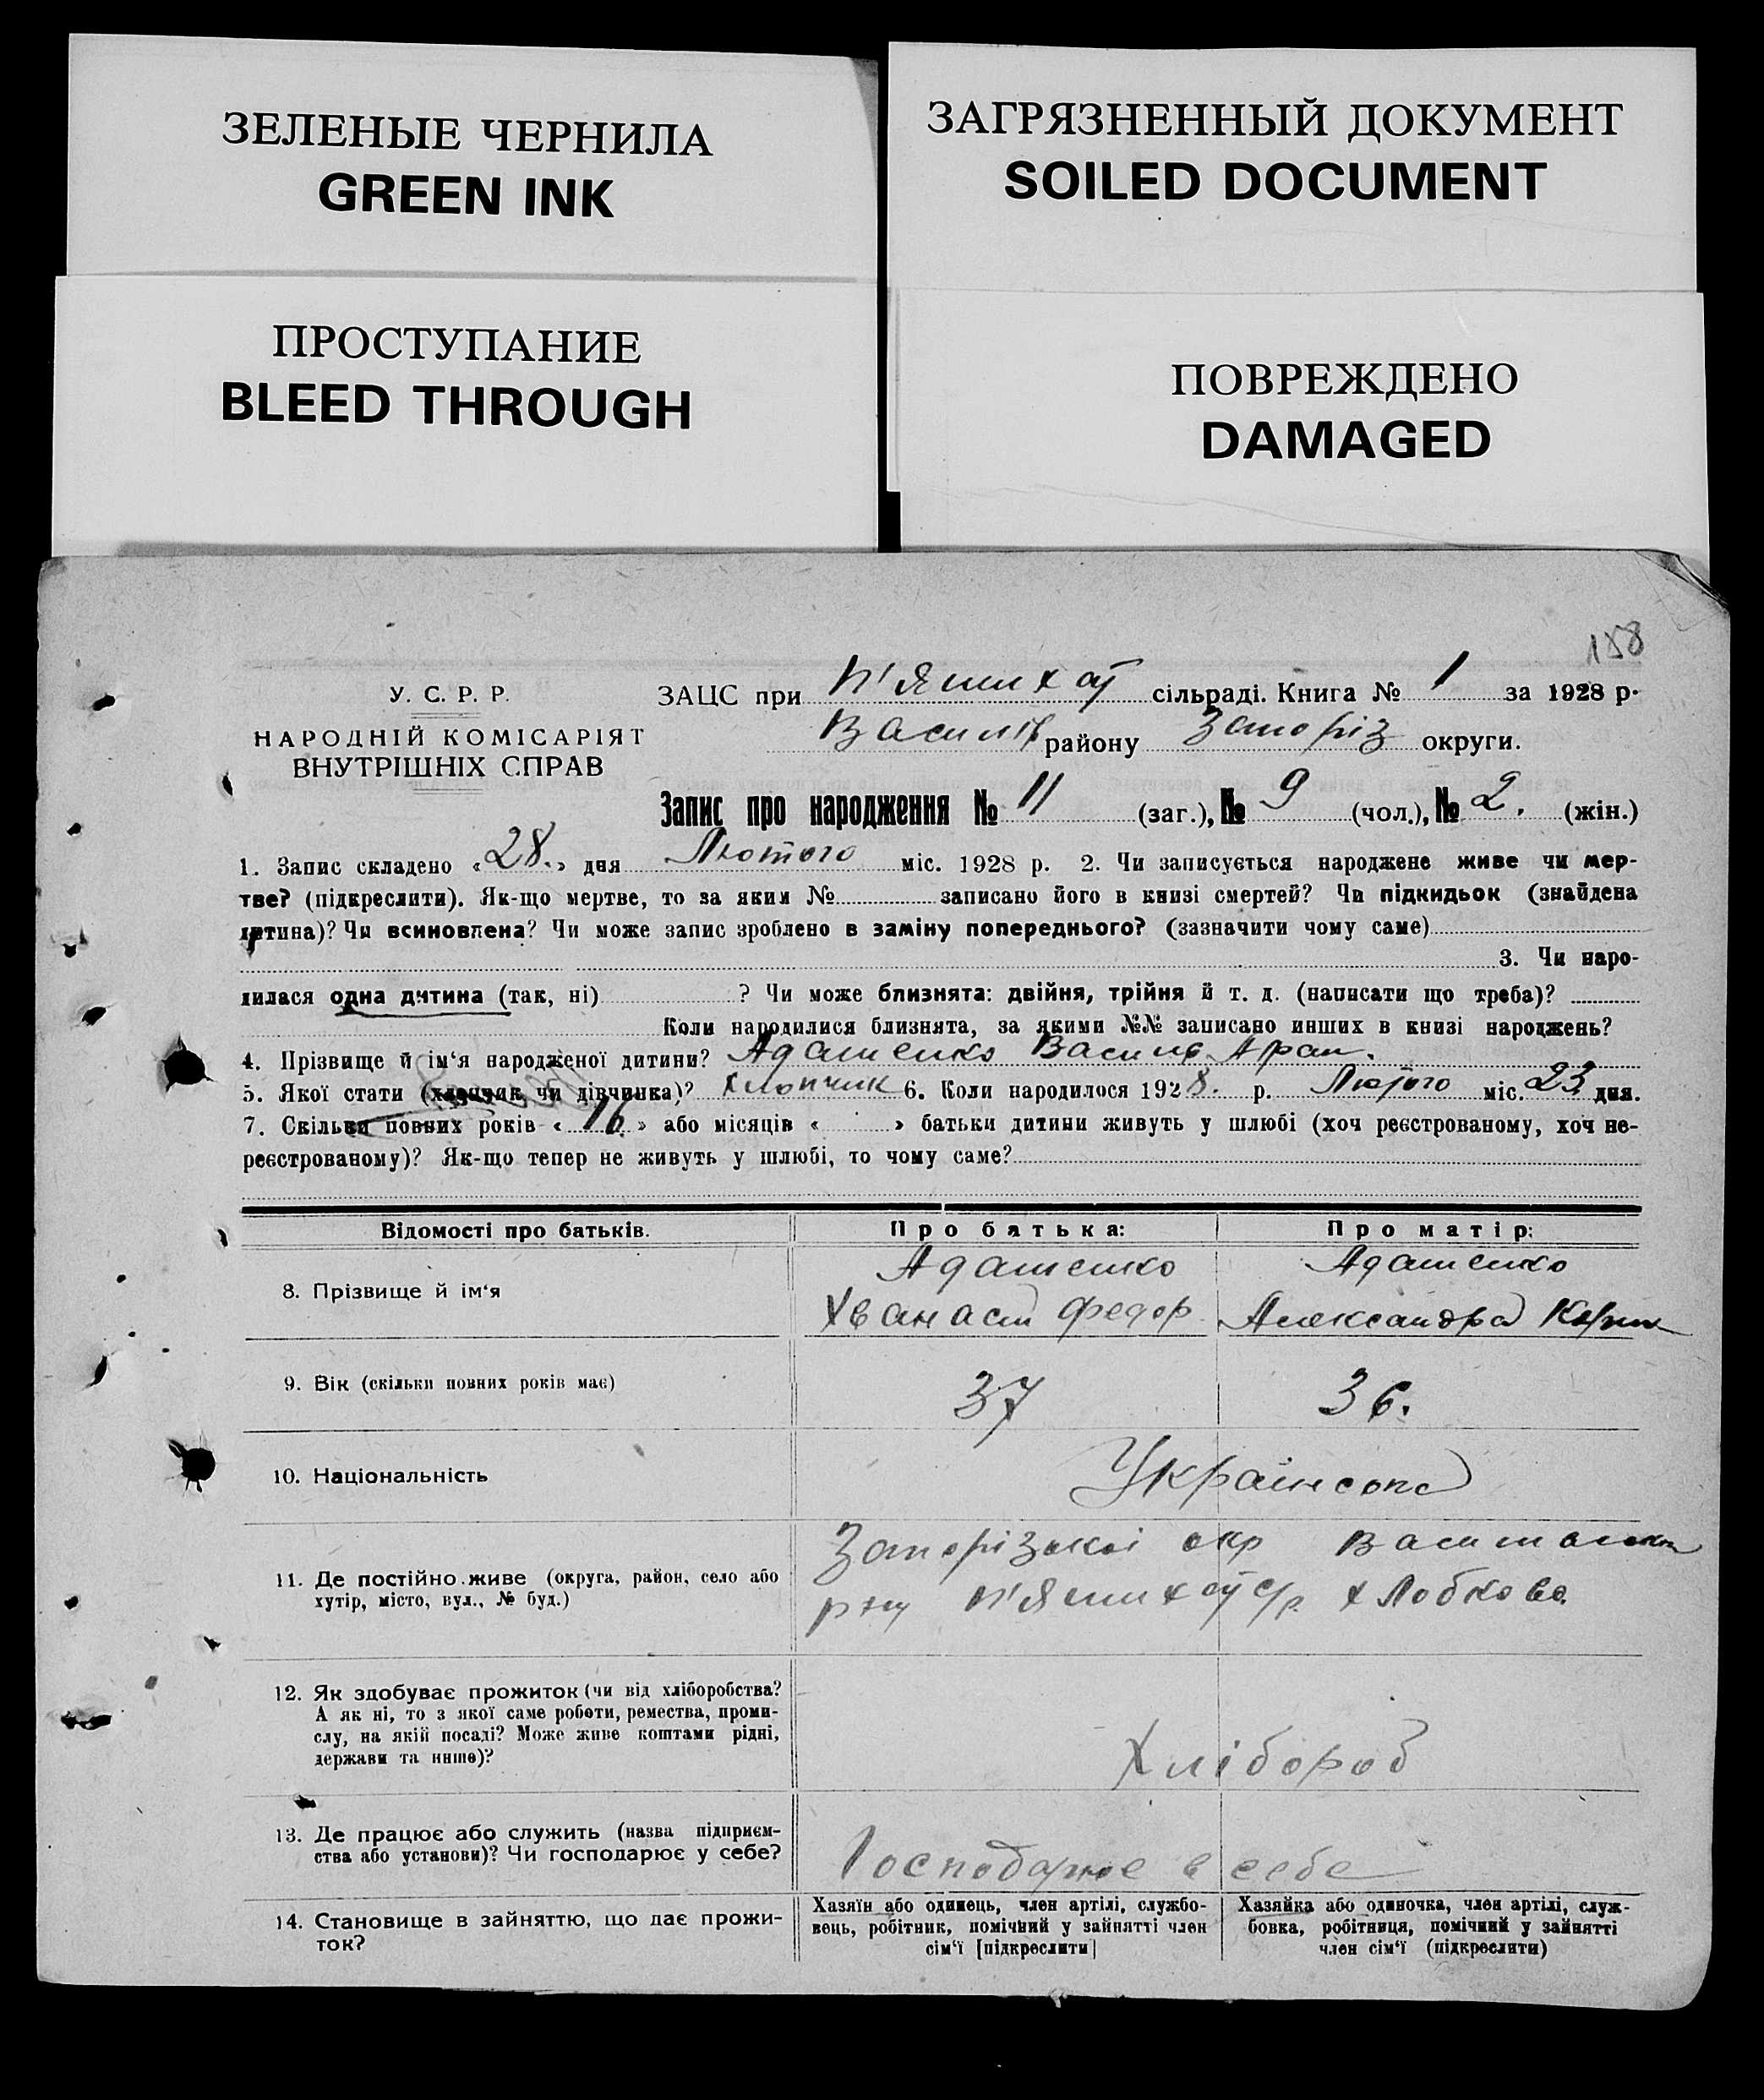 ЗЕЛЕНЫЕ ЧЕРНИЛА
GREEN INK
ЗАГРЯЗНЕННЫЙ ДОКУМЕНТ
SOILED DOCUMENT
ПРОСТУПАНИЕ
BLEED THROUGH
ПОВРЕЖДЕНО
DAMAGED
158
У. С. Р. Р.
НАРОДНІЙ КОМІСАРІЯТ
ВНУТРІШНІХ СПРАВ
ЗАЦС при П'ятихат сільраді. Книга № 1 за 1928 р.
Василів району Запоріз округи.
Запис про народження № 11 (заг.), № 9 (чол.), № 2. (жін.)
1. Запис складено «28.» дня Лютого міс. 1928 р. 2. Чи записується народжене живе чи мер-
тве? (підкреслити). Як-що мертве, то за яким № записано його в книзі смертей? Чи підкидьок (знайдена
дитина)? Чи всиновлена? Чи може запис зроблено в заміну попереднього? (зазначити чому саме)
3. Чи наро-
дилася одна дитина (так, ні) ? Чи може близнята: двійня, трійня й т. д. (написати що треба)?
Коли народилися близнята, за якими №№ записано инших в книзі народжень?
4. Прізвище й ім'я народженої дитини? Адаменко Василь Афан.
5. Якої стати (хлопчик чи дівчинка)? Хлопчик 6. Коли народилося 1928. р. Лютого міс. 23 дня.
7. Скільки повних років «16» або місяців « » батьки дитини живуть у шлюбі (хоч реєстрованому, хоч не-
реєстрованому)? Як-що тепер не живуть у шлюбі, то чому саме?
Відомості про батьків.
Про батька:
Про матір:
8. Прізвище й ім'я
Адаменко
Хванасій Федор
Адаменко
Александра
9. Вік (скільки повних років має)
37
36.
10. Національність
Українська
11. Де постійно живе (округа, район, село або
хутір, місто, вул., № буд.)
Запорізької окр
рну П'ятихат с/р. х Лобкове
12. Як здобуває прожиток (чи від хліборобства?
А як ні, то з якої саме роботи, ремества, проми-
слу, на якій посаді? Може живе коштами рідні,
держави та инше)?
Хлібороб
13. Де працює або служить (назва підприєм-
ства або установи)? Чи господарює у себе?
Господарює в себе
14. Становище в зайняттю, що дає прожи-
ток?
Хазяїн або одинець, член артілі, службо-
вець, робітник, помічний у зайнятті член
сім'ї [підкреслити]
Хазяйка або одиночка, член артілі, служ-
бовка, робітниця, помічний у зайнятті
член сім'ї (підкреслити)